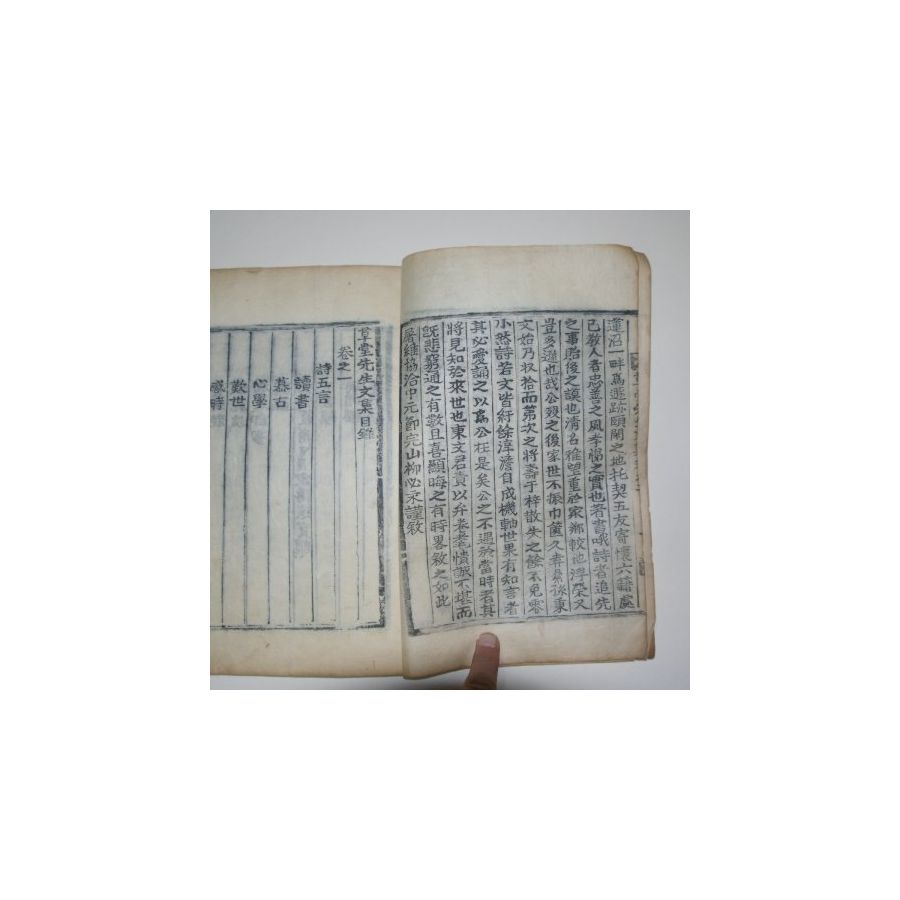 蓮沼一畔爲遯跡頤閑之地托契五友寄懷六籍處
已敎人者忠善之風孝悌之實也著書哦詩者追先
之事貽後之謨也淸名雅望重於家鄕較地浮榮又
豈多遜也哉公歿之後家世不振巾篋久弃 孫東
文始乃收拾而第次之將壽于梓散失之餘不免零
小然詩若文皆紆餘淳澹自成機軸世果有知言者
其必愛誦之以爲公在是矣公之不遇於當時者其
將見知於來世也東文君責以弁卷耄情誠不堪而
旣悲窮通之有數且喜顯晦之有時畧敘之如此
屠維協洽中元節完山柳必永謹敘
草堂先生文集目錄
卷之一
詩五言
讀書
慕古
心學
歎世
感時